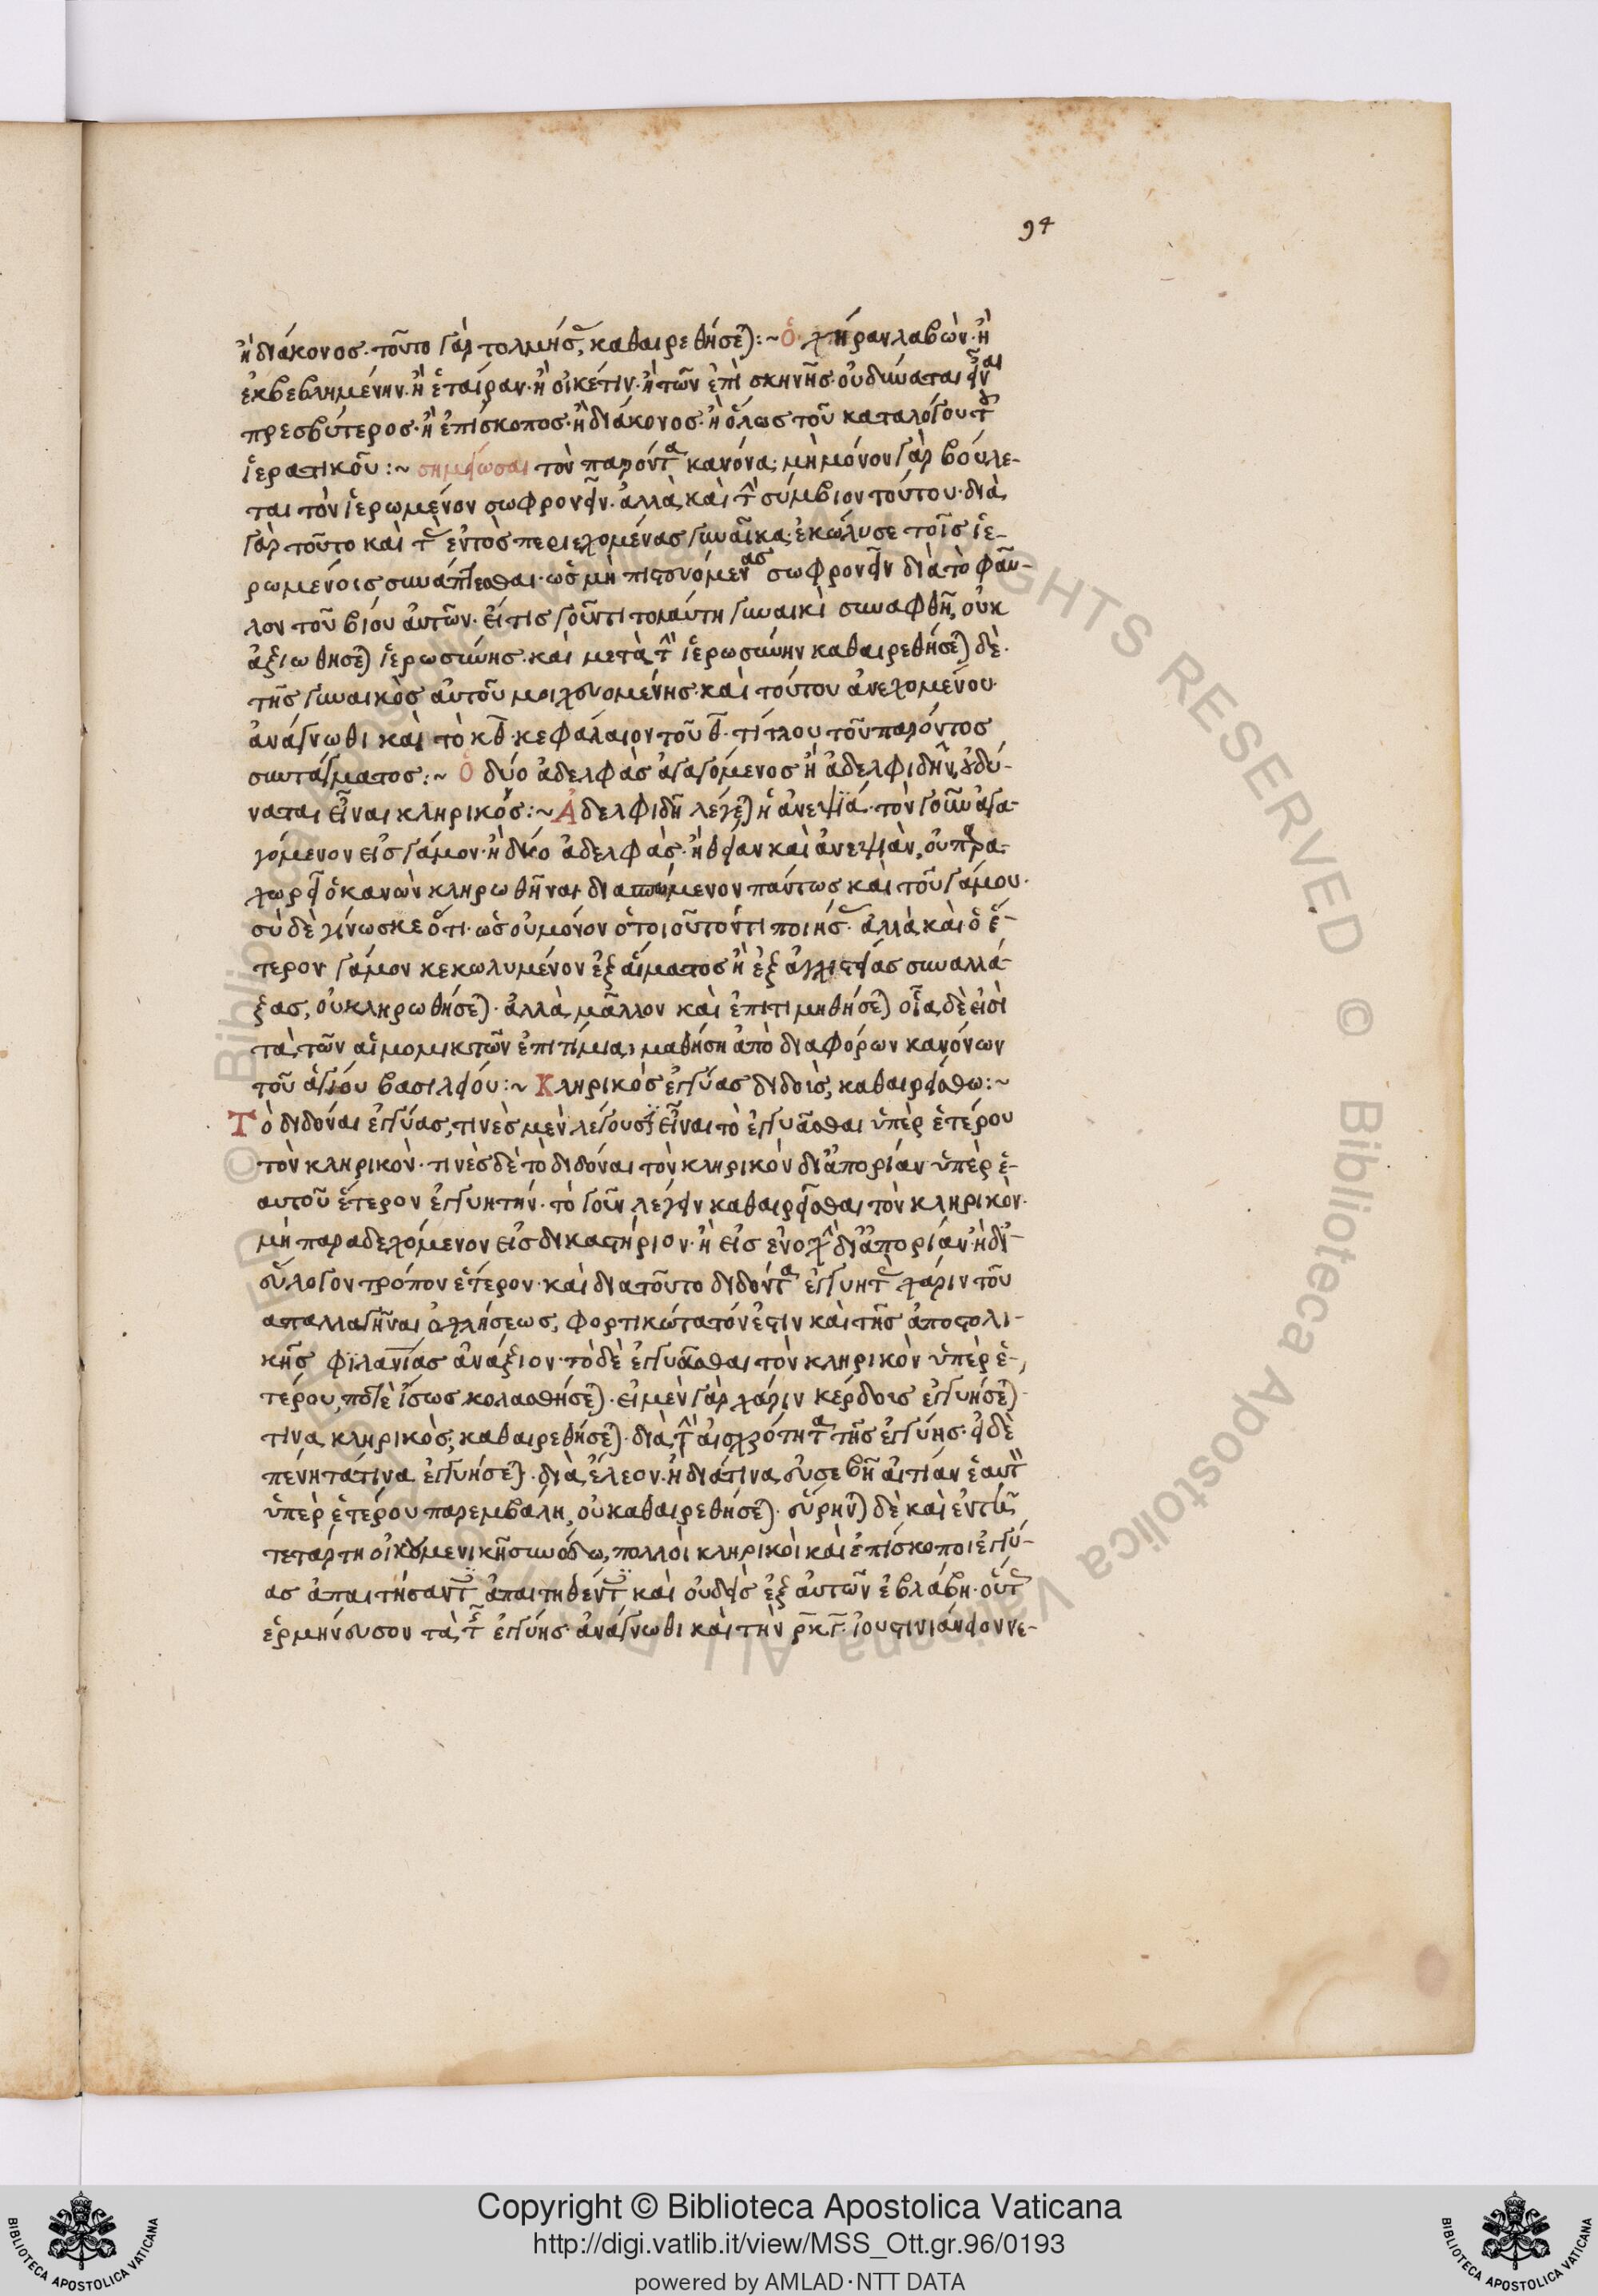 94
ἢ διάκονος· τοῦτο γὰρ τολμήσ, καθαιρεθήσε):~ ὁ χήραν λαβὼν· ἢ
ἐκβεβλημένην· ἢ ἑταίραν· ἢ οἰκέτιν· ἢ τῶν ἐπὶ σκηνῆς· οὐ δύναται εἶναι
πρεσβύτερος· ἢ ἐπίσκοπος· ἢ διάκονος· ἢ ὅλως τοῦ καταλόγου τ
ἱερατικοῦ:~ σημείωσαι τὸν παρόντα κανόνα· μὴ μόνον γὰρ βούλε-
ται τὸν ἱερωμένον σωφρονεῖν· ἀλλὰ καὶ τ σύμβιον τούτου· διὰ
γὰρ τοῦτο καὶ τ ἐντὸς περιεχομένας γυναῖκα· ἐκώλυσε τοῖς ἱε-
ρωμένοις συνάπτεσθαι· ὡς μὴ πιστευόμενας σωφρονεῖν διὰ τὸ φαῦ-
λον τοῦ βίου αὐτῶν· εἴ τις γοῦν τι τοιαύτη γυναικὶ συναφθῆ, οὐκ
ἀξιωθησε) ἱερωσύνης· καὶ μετὰ τ ἱερωσύνην καθαιρεθήσε) δὲ·
τῆς γυναικὸς αὐτοῦ μοιχευομένης· καὶ τούτου ἀνεχομένου·
ἀνάγνωθι καὶ τὸ κθ· κεφάλαιον τοῦ θ· τίτλου τοῦ παρόντος
συντάγματος:~ Ὁ δύο ἀδελφὰς ἀγαγόμενος ἢ ἀδελφιδῆν, οὐ δύ-
ναται εἶναι κληρικός:~ Ἀδελφιδῆ λέγε) ἡ ἀνεψϊά· τὸν γοῦν ἀγα-
γόμενον εἰς γάμον· ἢ δύο ἀδελφὰς· ἢ θείαν καὶ ἀνεψιὰν, οὐ παρα-
χωρεῖ ὁ κανὼν κληρωθῆναι διαπώμενον πάντως καὶ τοῦ γάμου·
σὺ δὲ γίνωσκε ὅτι· ὡς οὐ μόνον ὁ τοιοῦτόν τι ποιήσ· ἀλλὰ καὶ ὁ ἕ-
τερον γάμον κεκωλυμένον ἐξ αἵματος ἢ ἐξ ἀγχιστείας συναλλά-
ξας, οὐ κληρωθήσε)· ἀλλὰ μᾶλλον καὶ ἐπιτιμηθήσε) οἷα δὲ εἰσὶ
τὰ τῶν αἱμομικτῶν ἐπιτίμια, μαθήση ἀπὸ διαφόρων κανόνων
τοῦ ἁγίου βασιλείου:~ Κληρικὸς ἐγγύας διδοὺς, καθαιρείσθω:~
Τὸ διδόναι ἐγγύας, τινὲς μὲν λέγουσι εἶναι τὸ ἐγγυᾶσθαι ὑπὲρ ἑτέρου
τὸν κληρικὸν· τινὲς δὲ τὸ διδόναι τὸν κληρικὸν δι ἀπορίαν ὑπὲρ ἑ-
αυτοῦ ἕτερον ἐγγυητήν· τὸ γοῦν λέγειν καθαιρεῖσθαι τὸν κληρικὸν·
μὴ παραδεχόμενον εἰς δικαστήριον· ἢ εἰς ἐνοχ δι ἀπορίαν· ἢ δι
εὔλογον τρόπον ἕτερον· καὶ διατοῦτο διδόντα ἐγγυητ χάριν τοῦ
απαλλαγῆναι ὀχλήσεως, φορτικώτατόν ἐστιν καὶ τῆς ἀποστολι-
κῆς φιλανίας ἀνάξιον· τὸ δὲ ἐγγυᾶσθαι τὸν κληρικὸν ὑπὲρ ἑ-
τέρου, ποτὲ ἴσως κολασθήσε)· εἰ μὲν γὰρ χάριν κέρδους ἐγγυήσε)
τινα κληρικὸς, καθαιρεθήσε)· διὰ τ αἰσχρότητα τῆς ἐγγύης· εἰ δὲ
πένητά τινα ἐγγυήσε)· διὰ ἔλεον· ἢ διά τινα εὐσεβῆ αἰτίαν ἑαυτ
ὑπὲρ ἑτέρου παρεμβάλη, οὐ καθαιρεθήσε)· εὕρην) δὲ καὶ ἐν τῆ
τετάρτη οἰκουμενικῆ συνόδω, πολλοὶ κληρικοὶ καὶ ἐπίσκοποι ἐγγύ-
ας ἀπαιτήσαντ ἀπαιτηθέντ καὶ οὐδεὶς ἐξ αὐτῶν ἐβλάβη· οὕτ
ἑρμήνευσον τὰ τ ἐγγύης· ἀνάγνωθι καὶ τὴν ρκγ· ἰουστινιάνειον νε-
Copyright © Biblioteca Apostolica Vaticana
http://digi.vatlib.it/view/MSS_Ott.gr.96/0193
powered by AMLAD·NTT DATA